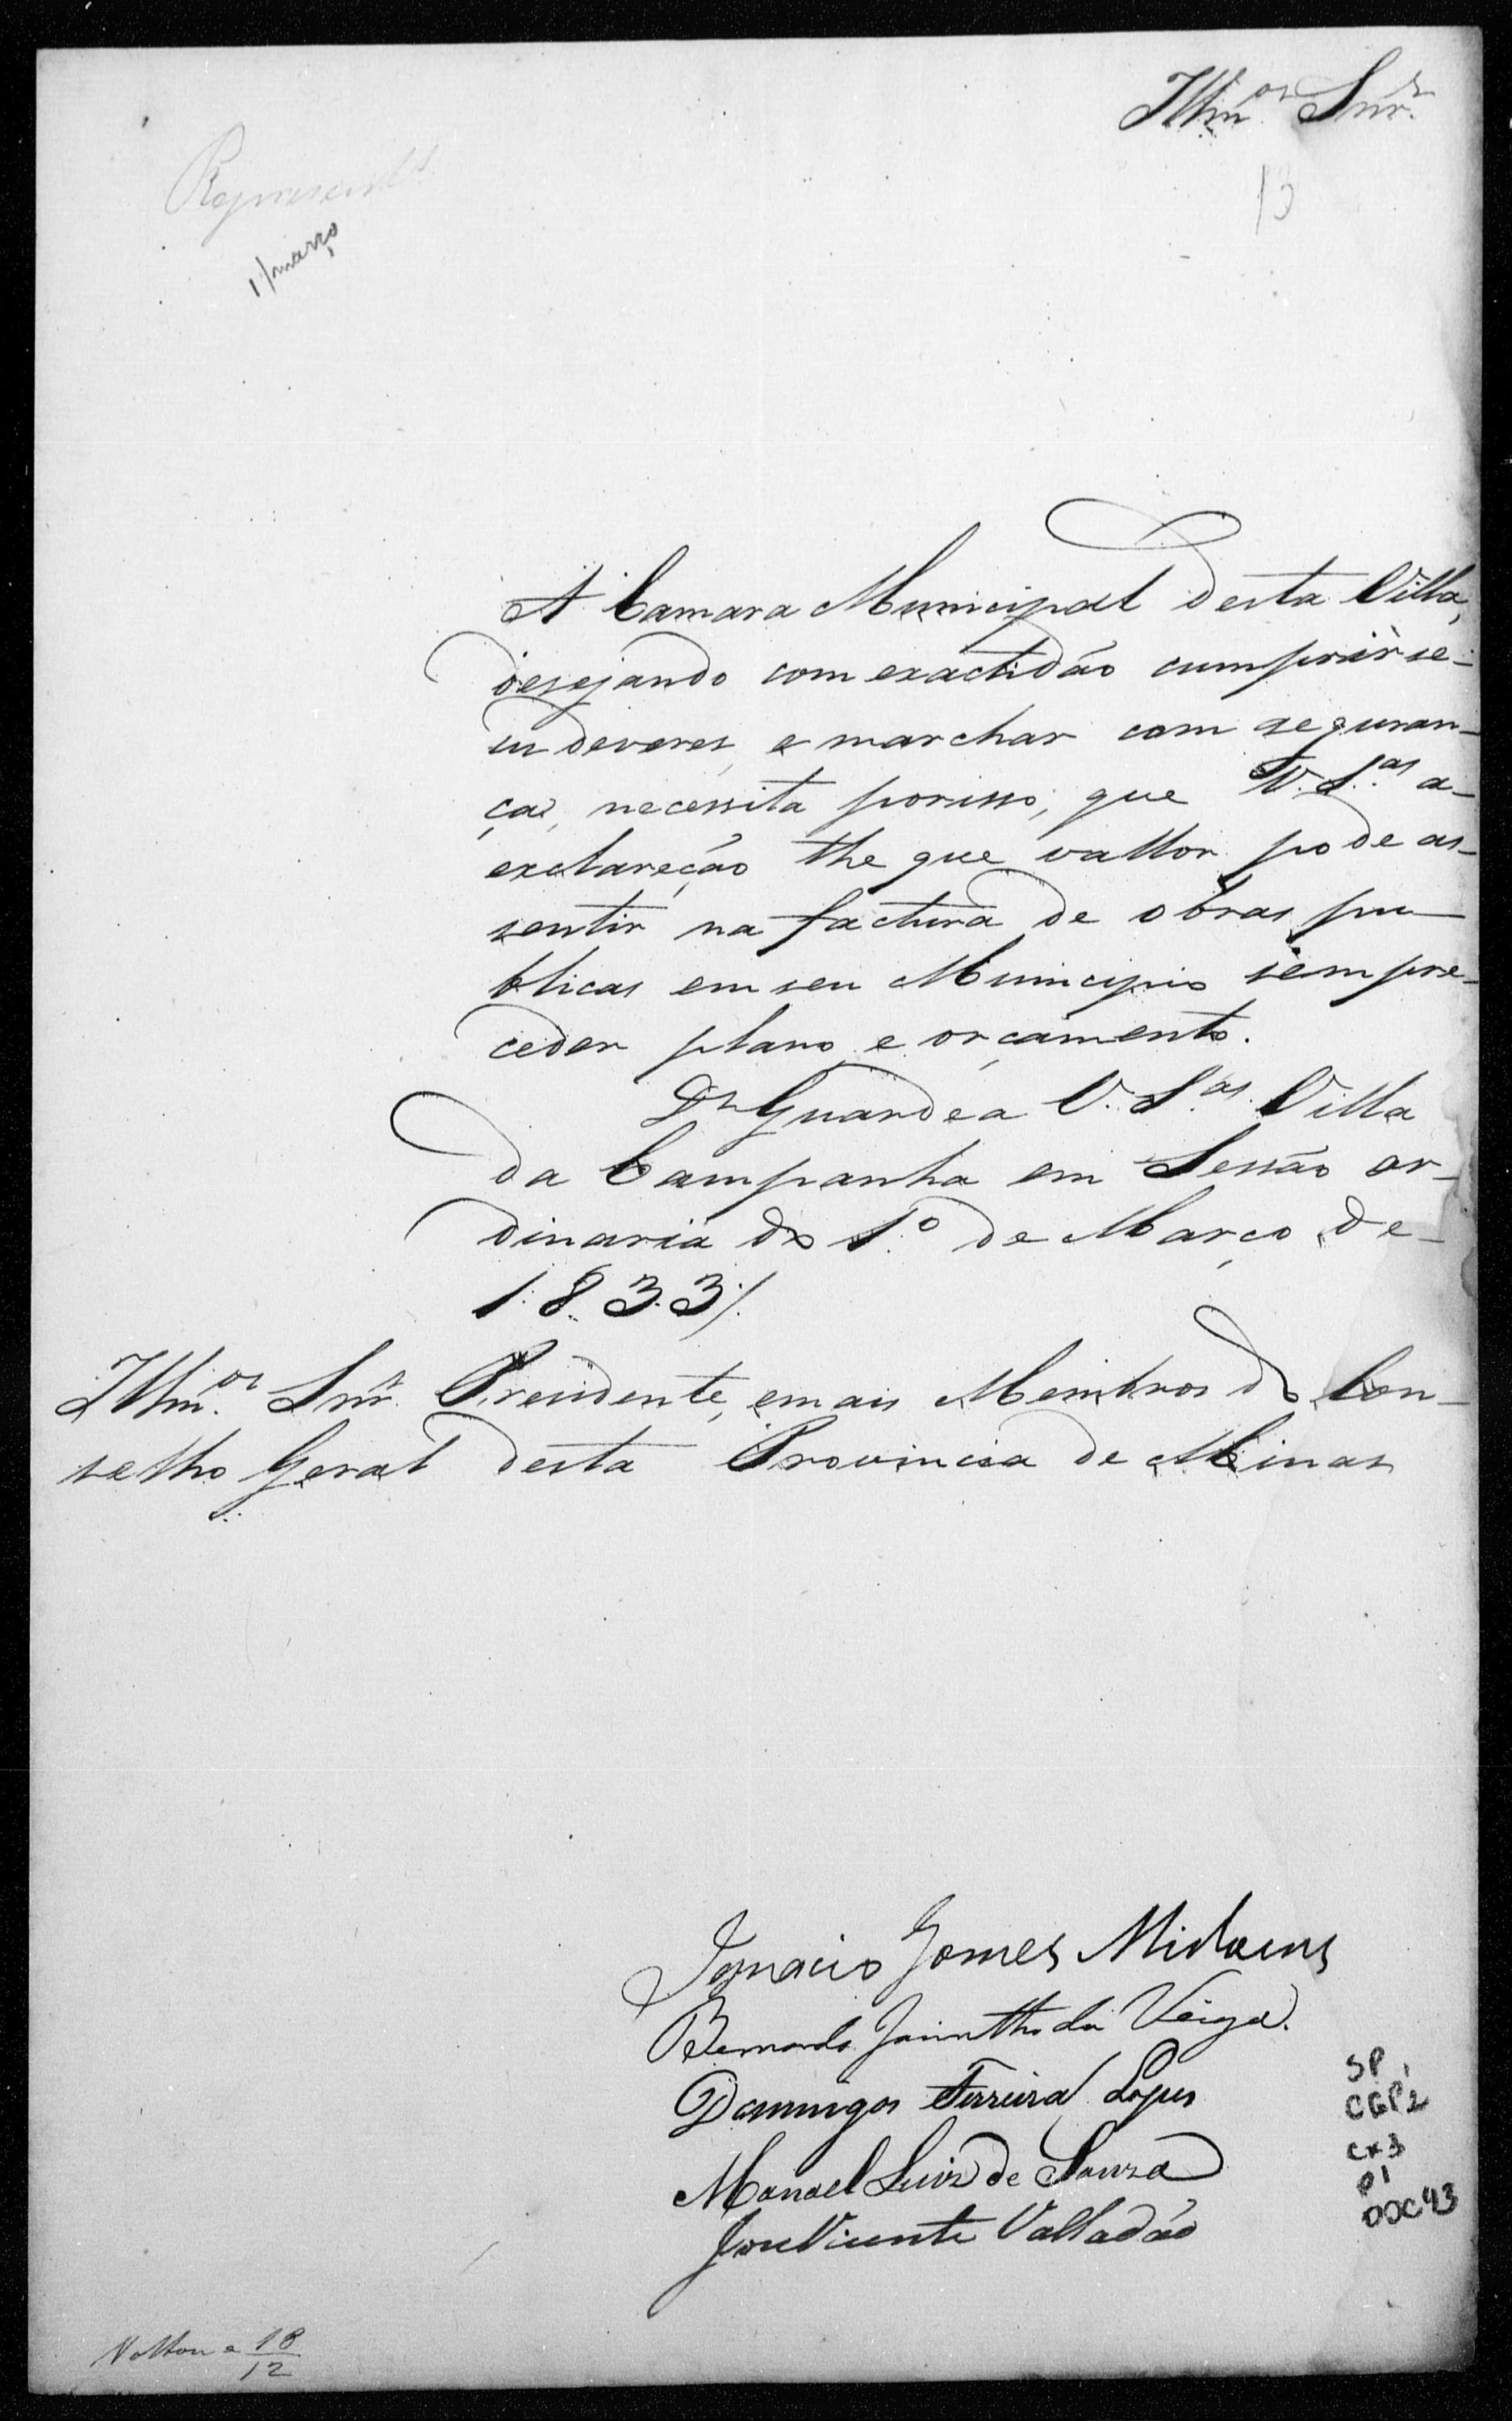 Illm.os Snr.s
13
Represent.s
1/março
A Camara Municipal desta Villa,
desejando com exactidão cumprir se-
us deveres, e marchar com seguran-
ça, necessita porisso, que V. S.as a-
exclareção lhe que vallor pode as-
sentir na factura de obras pu-
blicas em seu Municipio sem pre-
ceder plano, e orçamento.
Ds Guarde a V. S.as Villa
da Campanha em Sessão or-
dinaria do 1.º de Março de-
1833/.
Illm.os Snr.s Presidente, e mais Membros do Con-
selho Geral desta Provincia de Minas
Ignacio Gomes Midoens
Bernardo Jacintho da Veiga.
Domingos Ferreira Lopes
Manoel Luiz de Souza
Jose Vicente Valladão
SP
CGP2
cx3
p1
DOC43
Voltou a 18/12